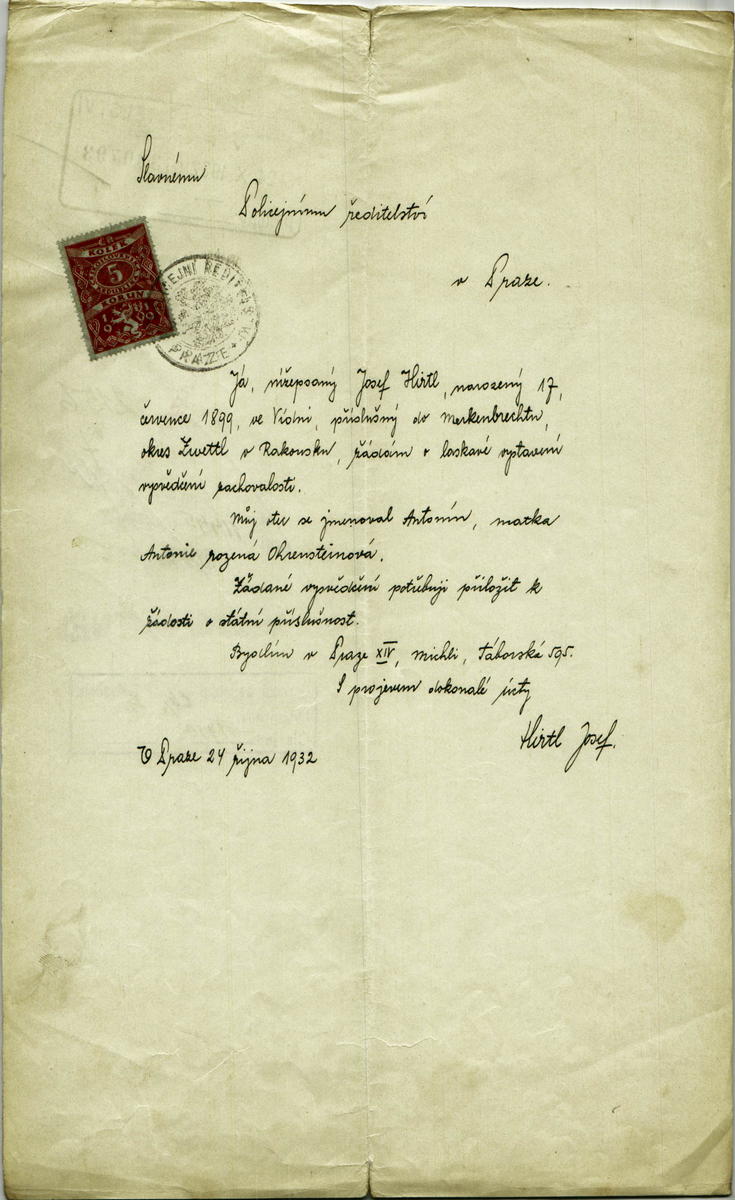 Slavnému
Policejnímu ředitelství
v Praze.
KOLEK
5
KORUN
1919
EJNÍ ŘEDIT
PRAZE
Já, nížepsaný Josef Hirtl, narozený 17,
července 1899, ve Vídni, příslušný do Merkenbrechtu,
okres Zwettl v Rakousku, žádám o laskavé vystavení
vysvědčení zachovalosti.
Můj otec se jmenoval Antonín, matka
Antonie rozená Ohrensteinová.
Žádané vysvědčení potřebuji přiložit k
žádosti o státní příslušnost.
Bydlím v Praze XIV, Michli, Táborská 595.
S projevem dokonalé úcty
Hirtl Josef.
V Praze 24 října 1932